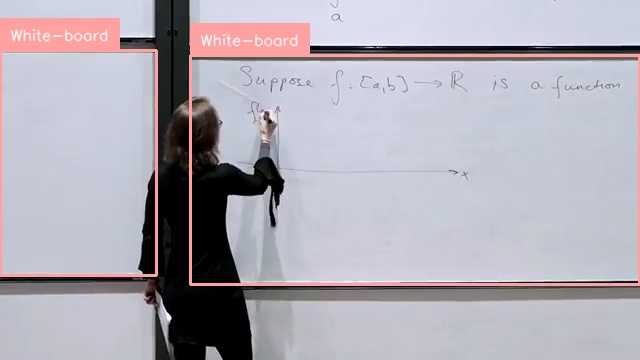 a
White-board
White-board
Suppose f : [a,b] → ℝ is a function
x